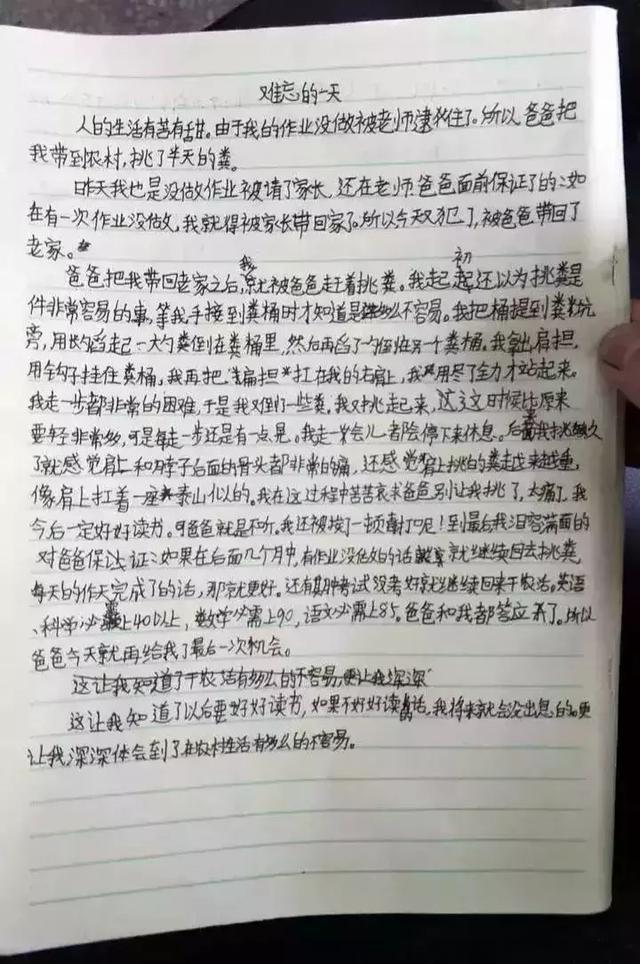 难忘的一天
人的生活有苦有甜。由于我的作业没做被老师逮住了。所以爸爸把
我带到农村,挑了半天的粪。
昨天我也是没做作业被请了家长,还在老师爸爸面前保证了的:如
在有一次作业没做,我就得被家长带回家了。所以今天又犯了,被爸爸带回了
老家。
爸爸把我带回老家之后,我就被爸爸赶着挑粪。我起初还以为挑粪是
件非常容易的事,等我手接到粪桶时才知道是多么不容易。我把桶提到粪坑
旁,用长舀舀起一大勺粪倒在粪桶里,然后再舀了勺倒在另一个粪桶。我拿出肩担,
用钩子挂住粪桶,我再把扁担扛在我的右肩上,我用尽了全力才站起来。
我走一步都非常的困难,于是我又倒了一些粪。我又挑起来,这这时候比原来
要轻非常多,可是每走一步还是有一点晃。我走一会儿都会停下来休息。后面我挑久
了就感觉肩上和脖子后面的骨头都非常的痛,还感觉肩上挑的粪越来越重,
像肩上扛着一座泰山似的。我在这过程中苦苦哀求爸爸别让我挑了,太痛了,我
今后一定好好读书。可爸爸就是不听。我还被挨了一顿毒打了呢!到最后我泪容满面的
对爸爸保证:如果在后面几个月中,有作业没做的话就继续回去挑粪,
每天的作天完成了的话,那就更好。还有期中考试没考好就继续回来干农活。英语
、科学必需上40以上,数学必需上90,语文必需上85。爸爸和我都答应了。所以
爸爸今天就再给我了最后一次机会。
这让我知道了干农活有多么的不容易,更让我深深
这让我知道了以后要好好读书,如果不好好读书的话,我将来就会没出息的。更
让我深深体会到了在农村生活有多么的不容易。